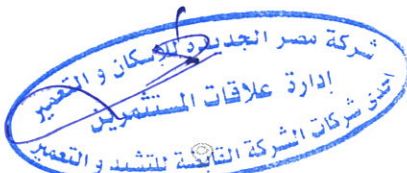 شركة مصر الجديدة للإسكان و التعمير
إدارة علاقات المستثمرين
احدى شركات الشركة القابضة للتشيد و التعمير